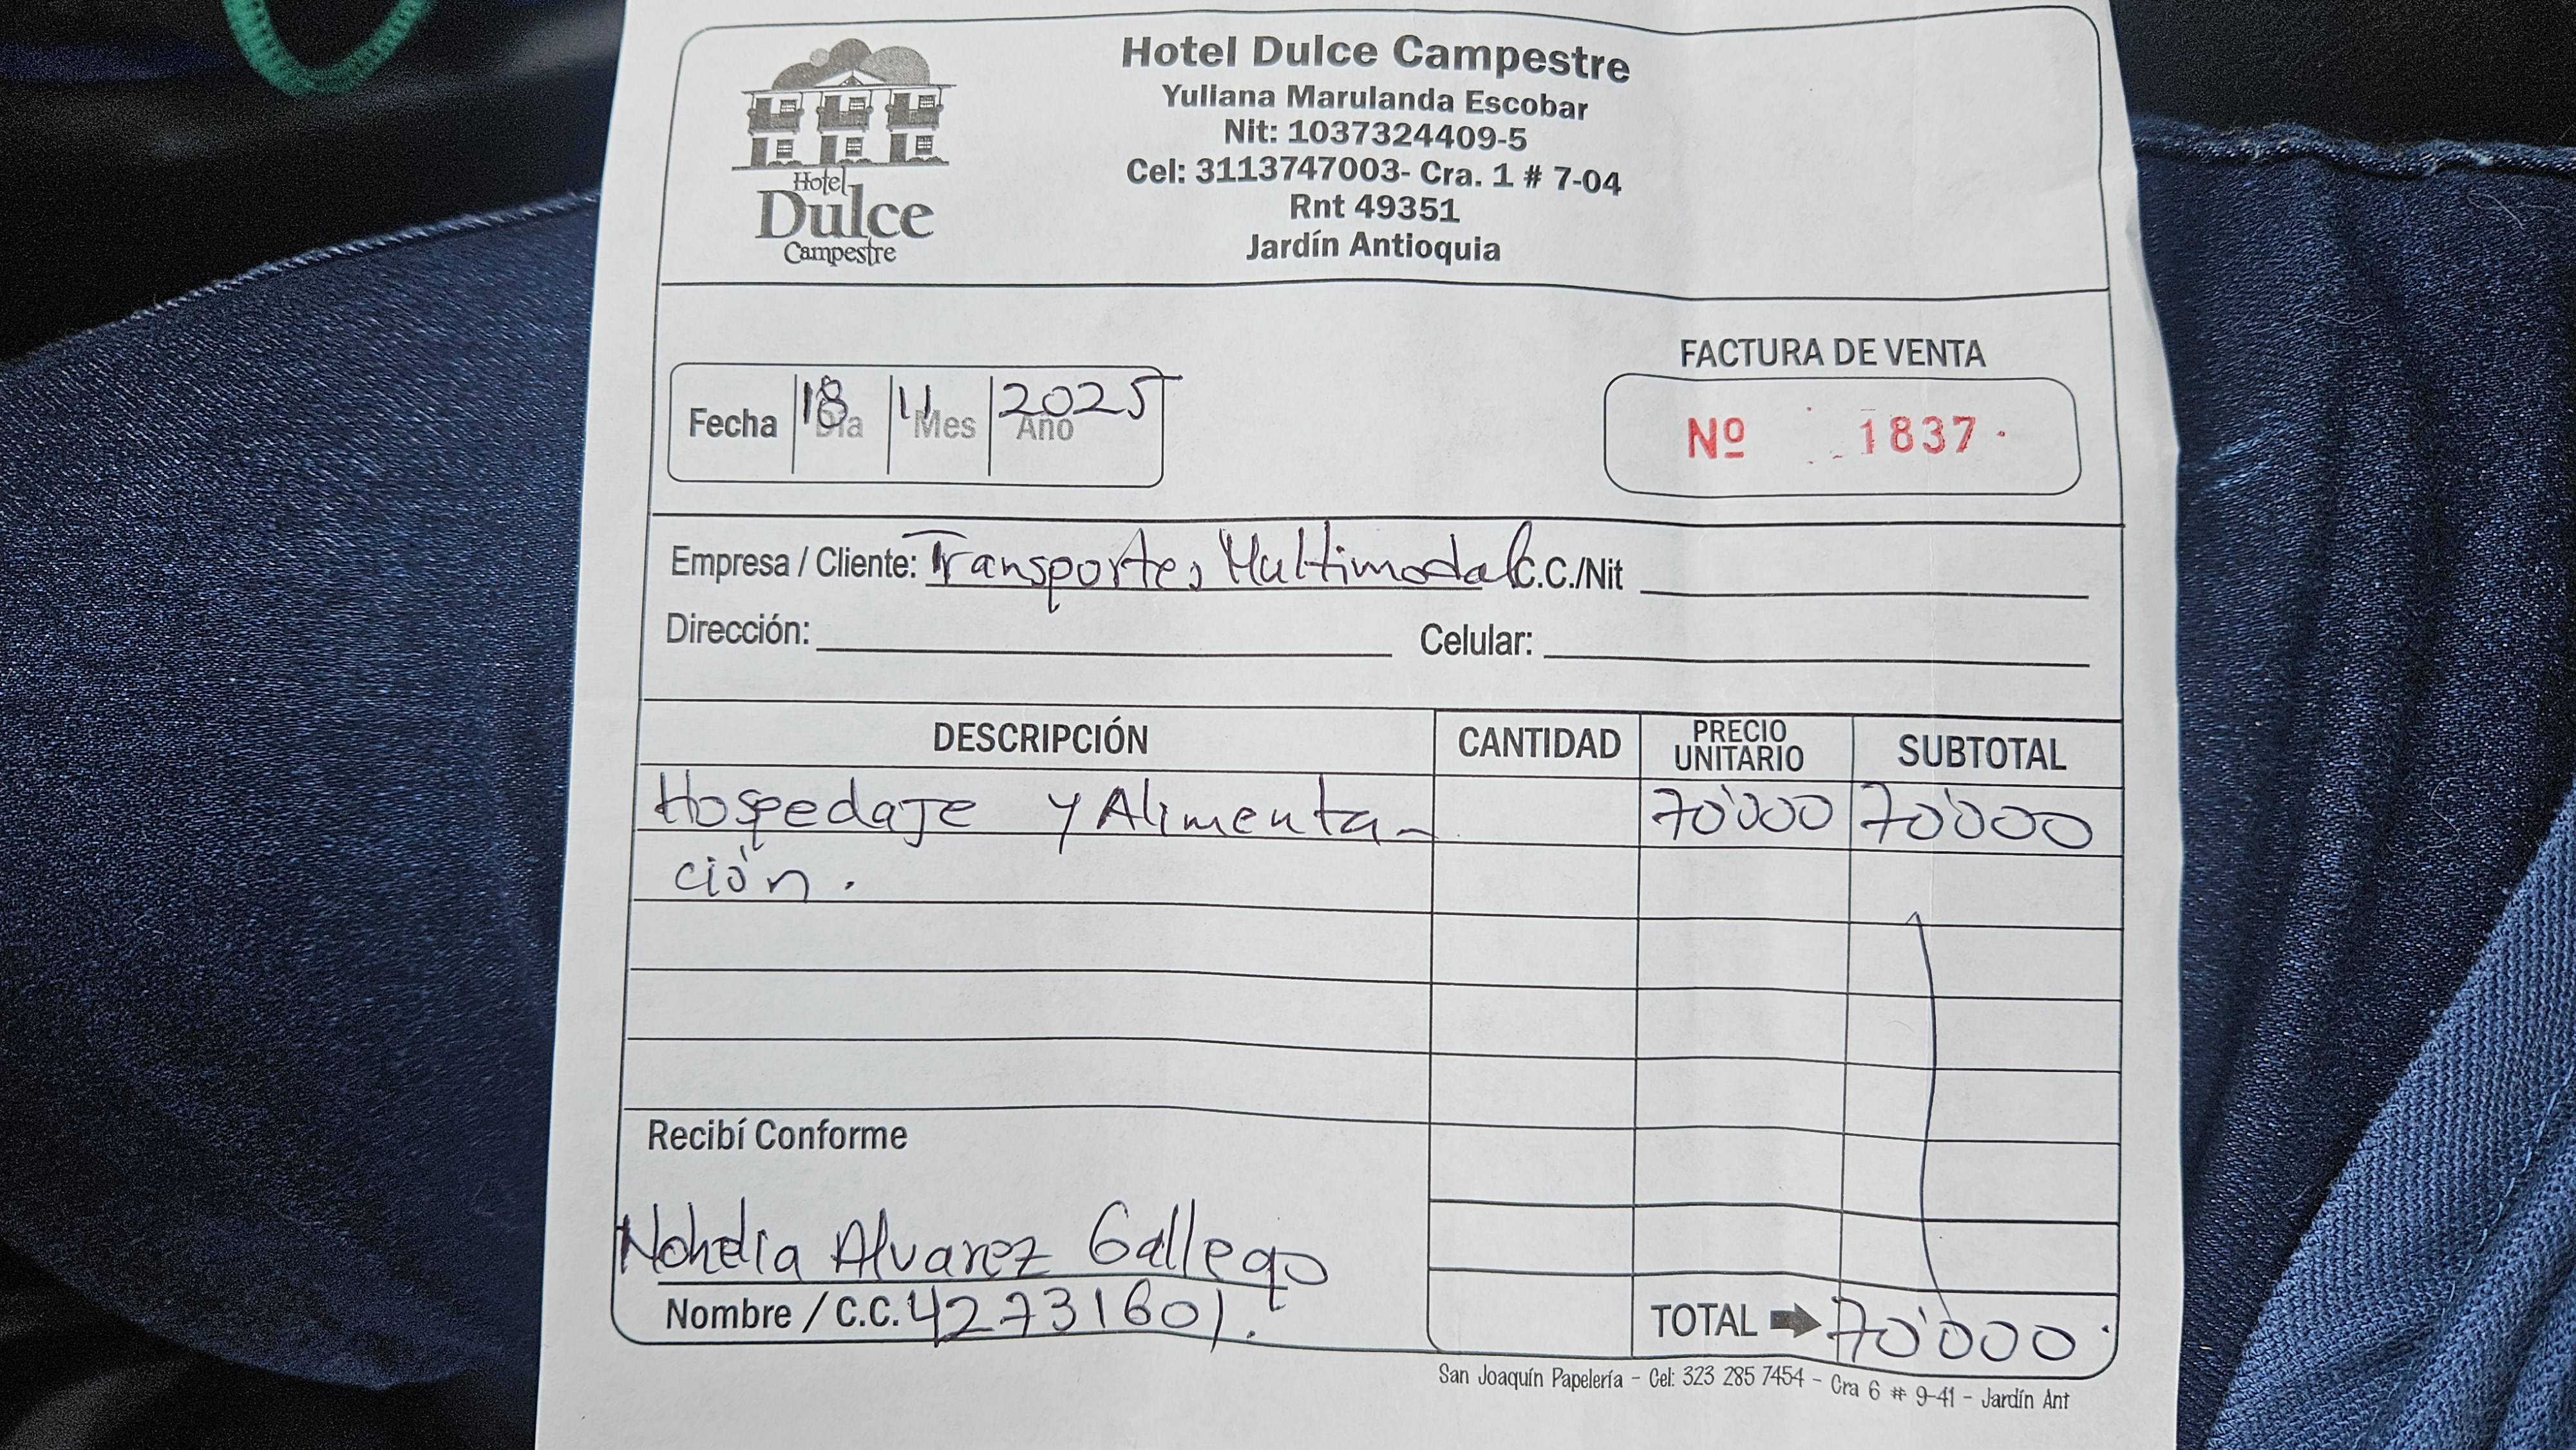 Hotel Dulce Campestre
Yuliana Marulanda Escobar
Nit: 1037324409-5
Cel: 3113747003- Cra. 1 # 7-04
Rnt 49351
Jardín Antioquia
Hotel
Dulce
Campestre
FACTURA DE VENTA
Fecha 18 Día 11 Mes 2025 Año
Nº 1837
Empresa / Cliente: Transportes Multimodal C.C./Nit
Dirección: Celular:
DESCRIPCIÓN CANTIDAD PRECIO UNITARIO SUBTOTAL
Hospedaje y Alimenta- 70'000 70'000
ción.
Recibí Conforme
Nohelia Alvarez Gallego
Nombre / C.C. 42731601.
TOTAL 70'000
San Joaquín Papelería - Cel: 323 285 7454 - Cra 6 # 9-41 - Jardín Ant